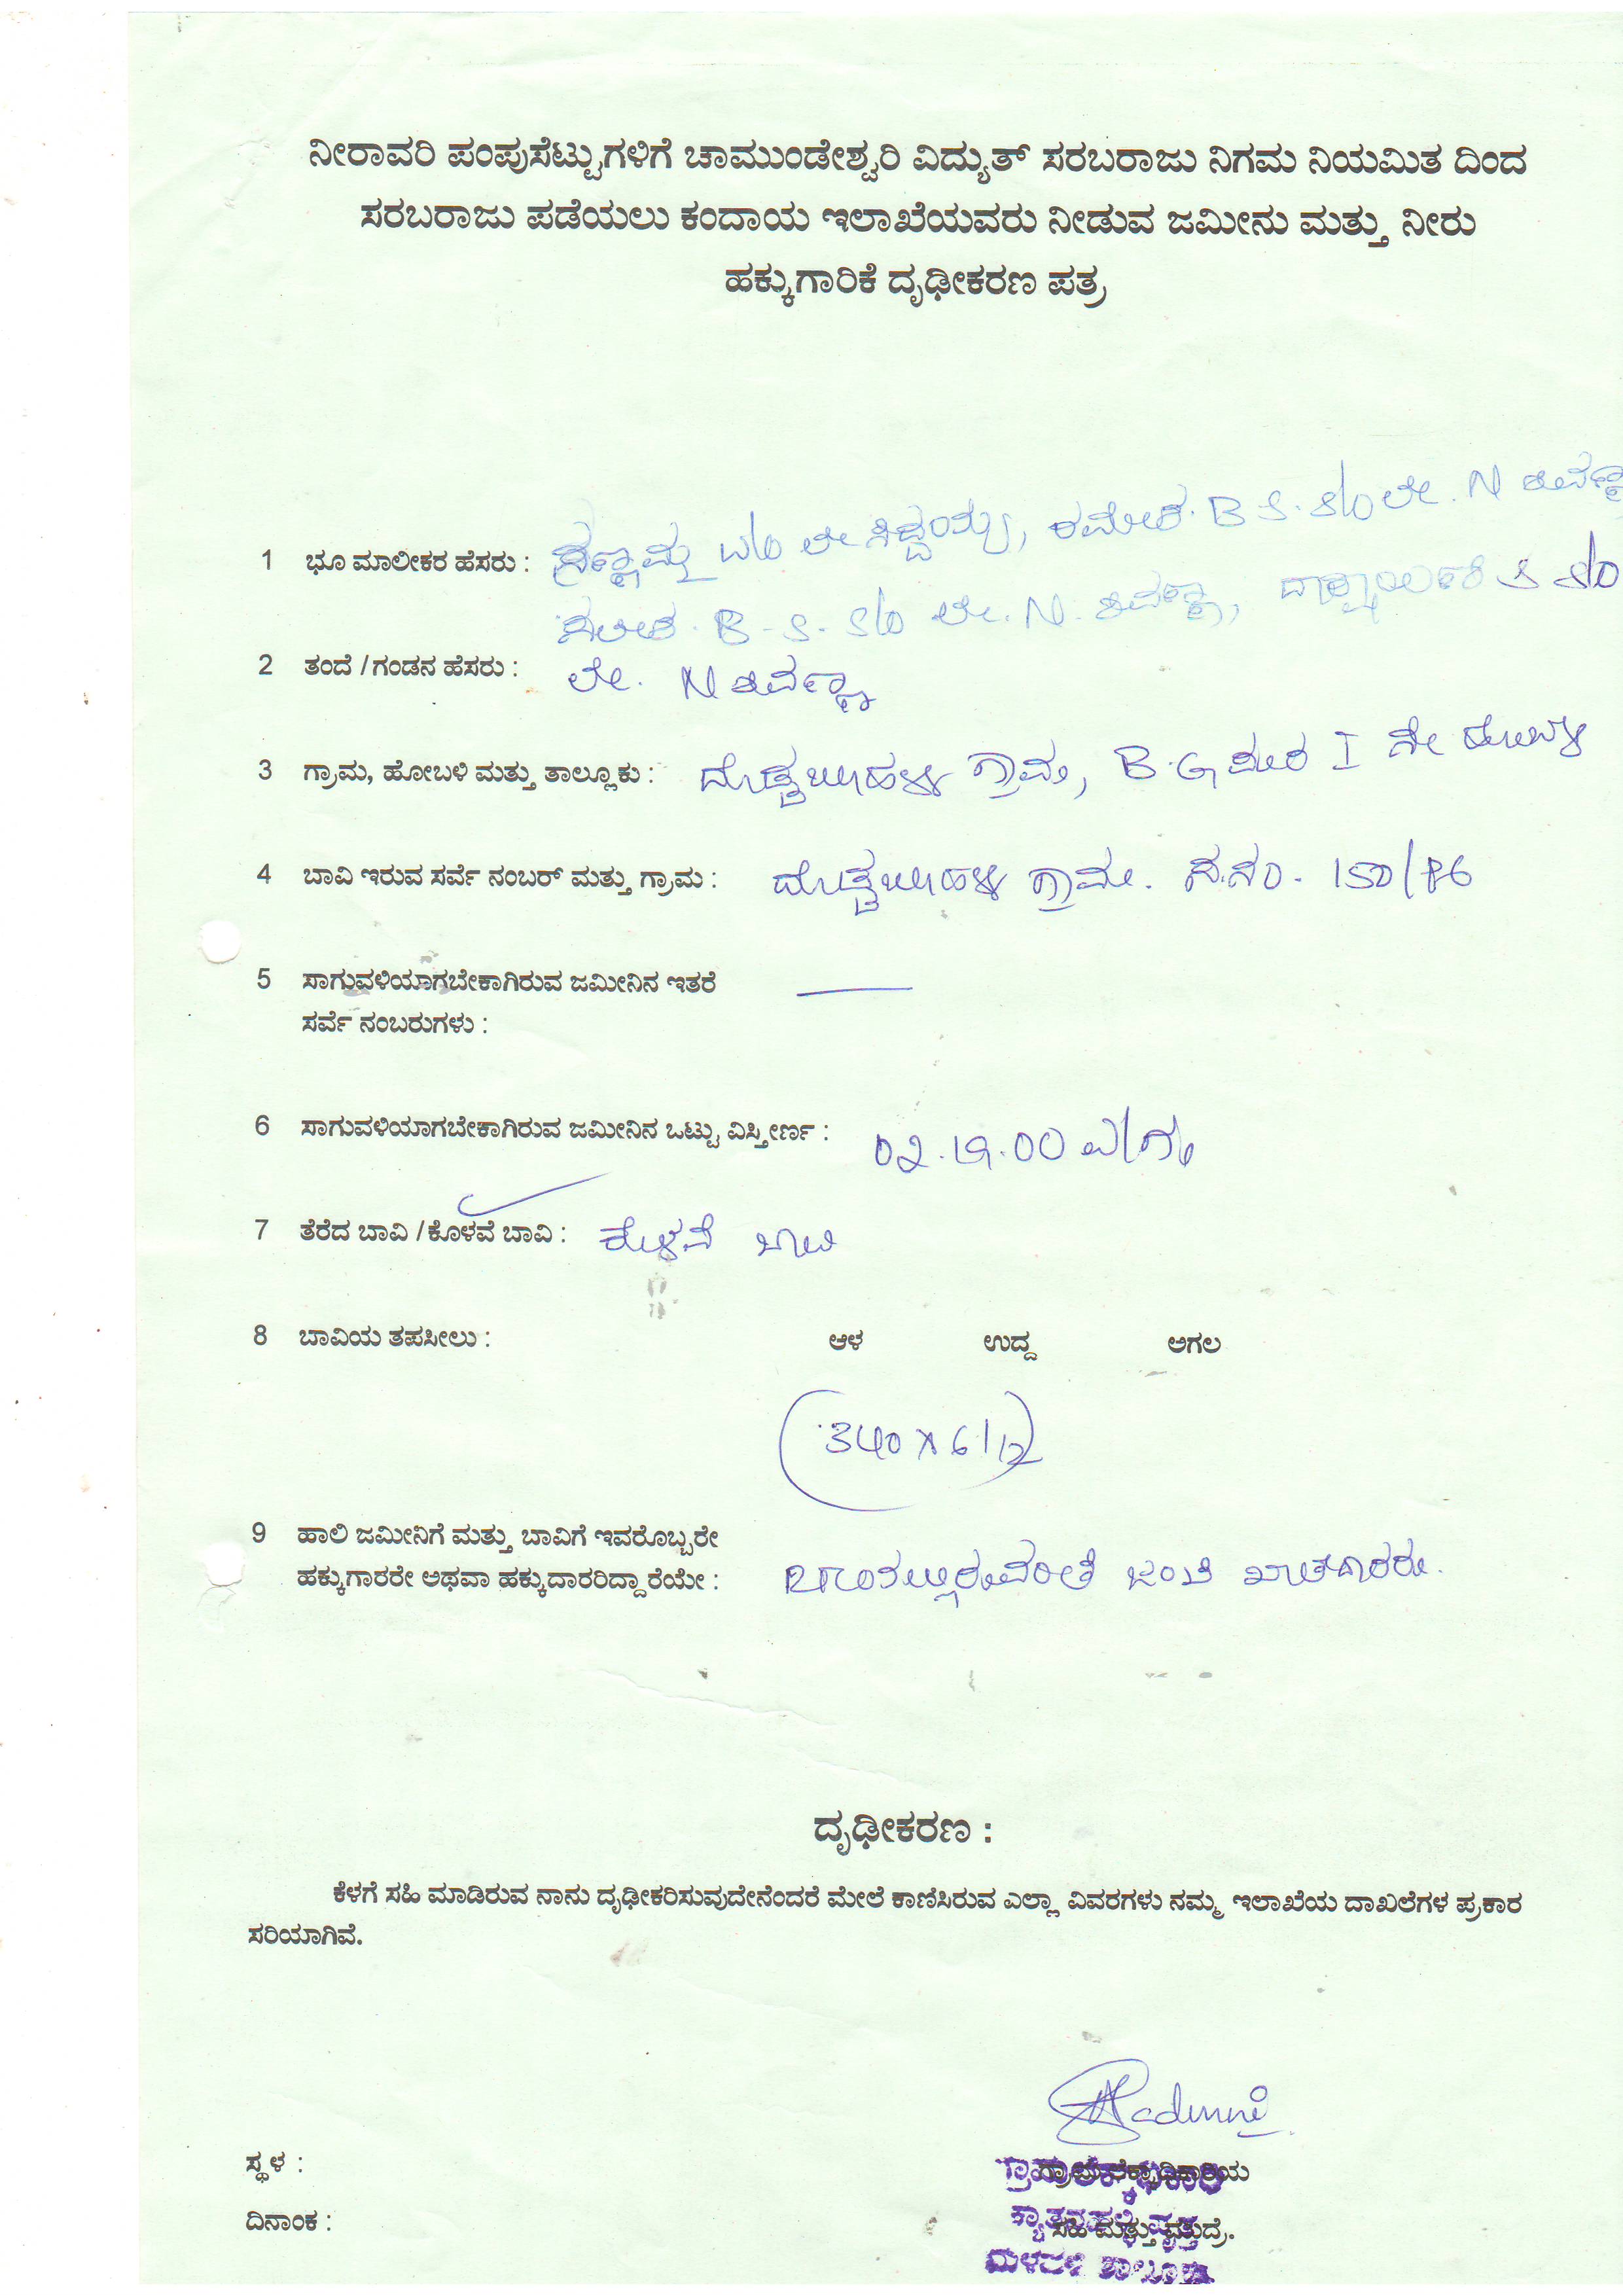 ನೀರಾವರಿ ಪಂಪುಸೆಟ್ಟುಗಳಿಗೆ ಚಾಮುಂಡೇಶ್ವರಿ ವಿದ್ಯುತ್ ಸರಬರಾಜು ನಿಗಮ ನಿಯಮಿತ ದಿಂದ
ಸರಬರಾಜು ಪಡೆಯಲು ಕಂದಾಯ ಇಲಾಖೆಯವರು ನೀಡುವ ಜಮೀನು ಮತ್ತು ನೀರು
ಹಕ್ಕುಗಾರಿಕೆ ದೃಢೀಕರಣ ಪತ್ರ
1 ಭೂ ಮಾಲೀಕರ ಹೆಸರು : ಸಣ್ಣಮ್ಮ W/O ಲೇ ಸಿದ್ದಯ್ಯ, ರಮೇಶ. B S. S/O ಲೇ. N ಶಿವಣ್ಣ
B-S. S/O ಲೇ. N. ಶಿವಣ್ಣ, S S/O
2 ತಂದೆ / ಗಂಡನ ಹೆಸರು : ಲೇ. N ಶಿವಣ್ಣ
3 ಗ್ರಾಮ, ಹೋಬಳಿ ಮತ್ತು ತಾಲ್ಲೂಕು : ಗ್ರಾಮ, B.G ಪುರ I ನೇ ಹೋಬಳಿ
4 ಬಾವಿ ಇರುವ ಸರ್ವೆ ನಂಬರ್ ಮತ್ತು ಗ್ರಾಮ : ಗ್ರಾಮ. ಸ.ನಂ. 150/P6
5 ಸಾಗುವಳಿಯಾಗಬೇಕಾಗಿರುವ ಜಮೀನಿನ ಇತರೆ —
ಸರ್ವೆ ನಂಬರುಗಳು :
6 ಸಾಗುವಳಿಯಾಗಬೇಕಾಗಿರುವ ಜಮೀನಿನ ಒಟ್ಟು ವಿಸ್ತೀರ್ಣ : 02.19.00 ಎ/ಗು
7 ತೆರೆದ ಬಾವಿ / ಕೊಳವೆ ಬಾವಿ : ಕೊಳವೆ ಬಾವಿ
8 ಬಾವಿಯ ತಪಸೀಲು : ಆಳ ಉದ್ದ ಅಗಲ
(340 X 6 1/2)
9 ಹಾಲಿ ಜಮೀನಿಗೆ ಮತ್ತು ಬಾವಿಗೆ ಇವರೊಬ್ಬರೇ
ಹಕ್ಕುಗಾರರೇ ಅಥವಾ ಹಕ್ಕುದಾರರಿದ್ದಾರೆಯೇ : ಜಂಟಿ ಖಾತೆದಾರರು.
ದೃಢೀಕರಣ :
ಕೆಳಗೆ ಸಹಿ ಮಾಡಿರುವ ನಾನು ದೃಢೀಕರಿಸುವುದೇನೆಂದರೆ ಮೇಲೆ ಕಾಣಿಸಿರುವ ಎಲ್ಲಾ ವಿವರಗಳು ನಮ್ಮ ಇಲಾಖೆಯ ದಾಖಲೆಗಳ ಪ್ರಕಾರ
ಸರಿಯಾಗಿವೆ.
ಸ್ಥಳ :
ದಿನಾಂಕ : ಸಹಿ ಮತ್ತು ಮುದ್ರೆ.